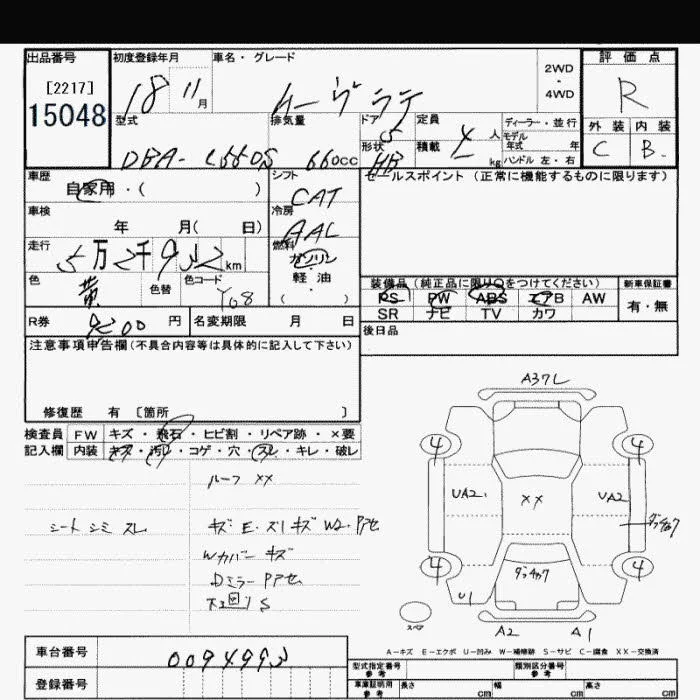 出品番号 初度登録年月 車名・グレード 2WD 評価点
[2217] 18 11月 ムーヴラテ ・ R
15048 4WD
型式 排気量 ドア 5 定員 4人 ディーラー・並行 外装 内装
DBA-L550S 660cc 形状 HB 積載 kg モデル年式 年 C B
ハンドル 左・右
車歴 シフト セールスポイント (正常に機能するものに限ります)
自家用・( ) CAT
車検 冷房
年 月( 日) AAC
走行 燃料
5万2千9 km ガソリン
色 色替 色コード 軽・油 装備品(純正品に限り○をつけてください) 新車保証書
黄 Y08 ( ) PS PW ABS エアB AW 有・無
R券 円 名変期限 月 日 SR ナビ TV カワ
後日品
注意事項申告欄(不具合内容等は具体的に記入して下さい)
修復歴 有 [箇所 ]
検査員 FW キズ・飛石・ヒビ割・リペア跡・×要
記入欄 内装 キズ・汚レ・コゲ・穴・スレ・キレ・破レ
ルーフ ××
シート シミ スレ
Wカバー キズ
Dミラー
A37L
4 4
UA2 ×× UA2
4 4
U1
スペア A2 A1
A-キズ E-エクボ U-凹み W-補修跡 S-サビ C-腐食 XX-交換済
車台番号
登録番号
型式指定番号 参考 類別区分番号 参考
車庫証明用 参考 長さ cm 幅 cm 高さ cm